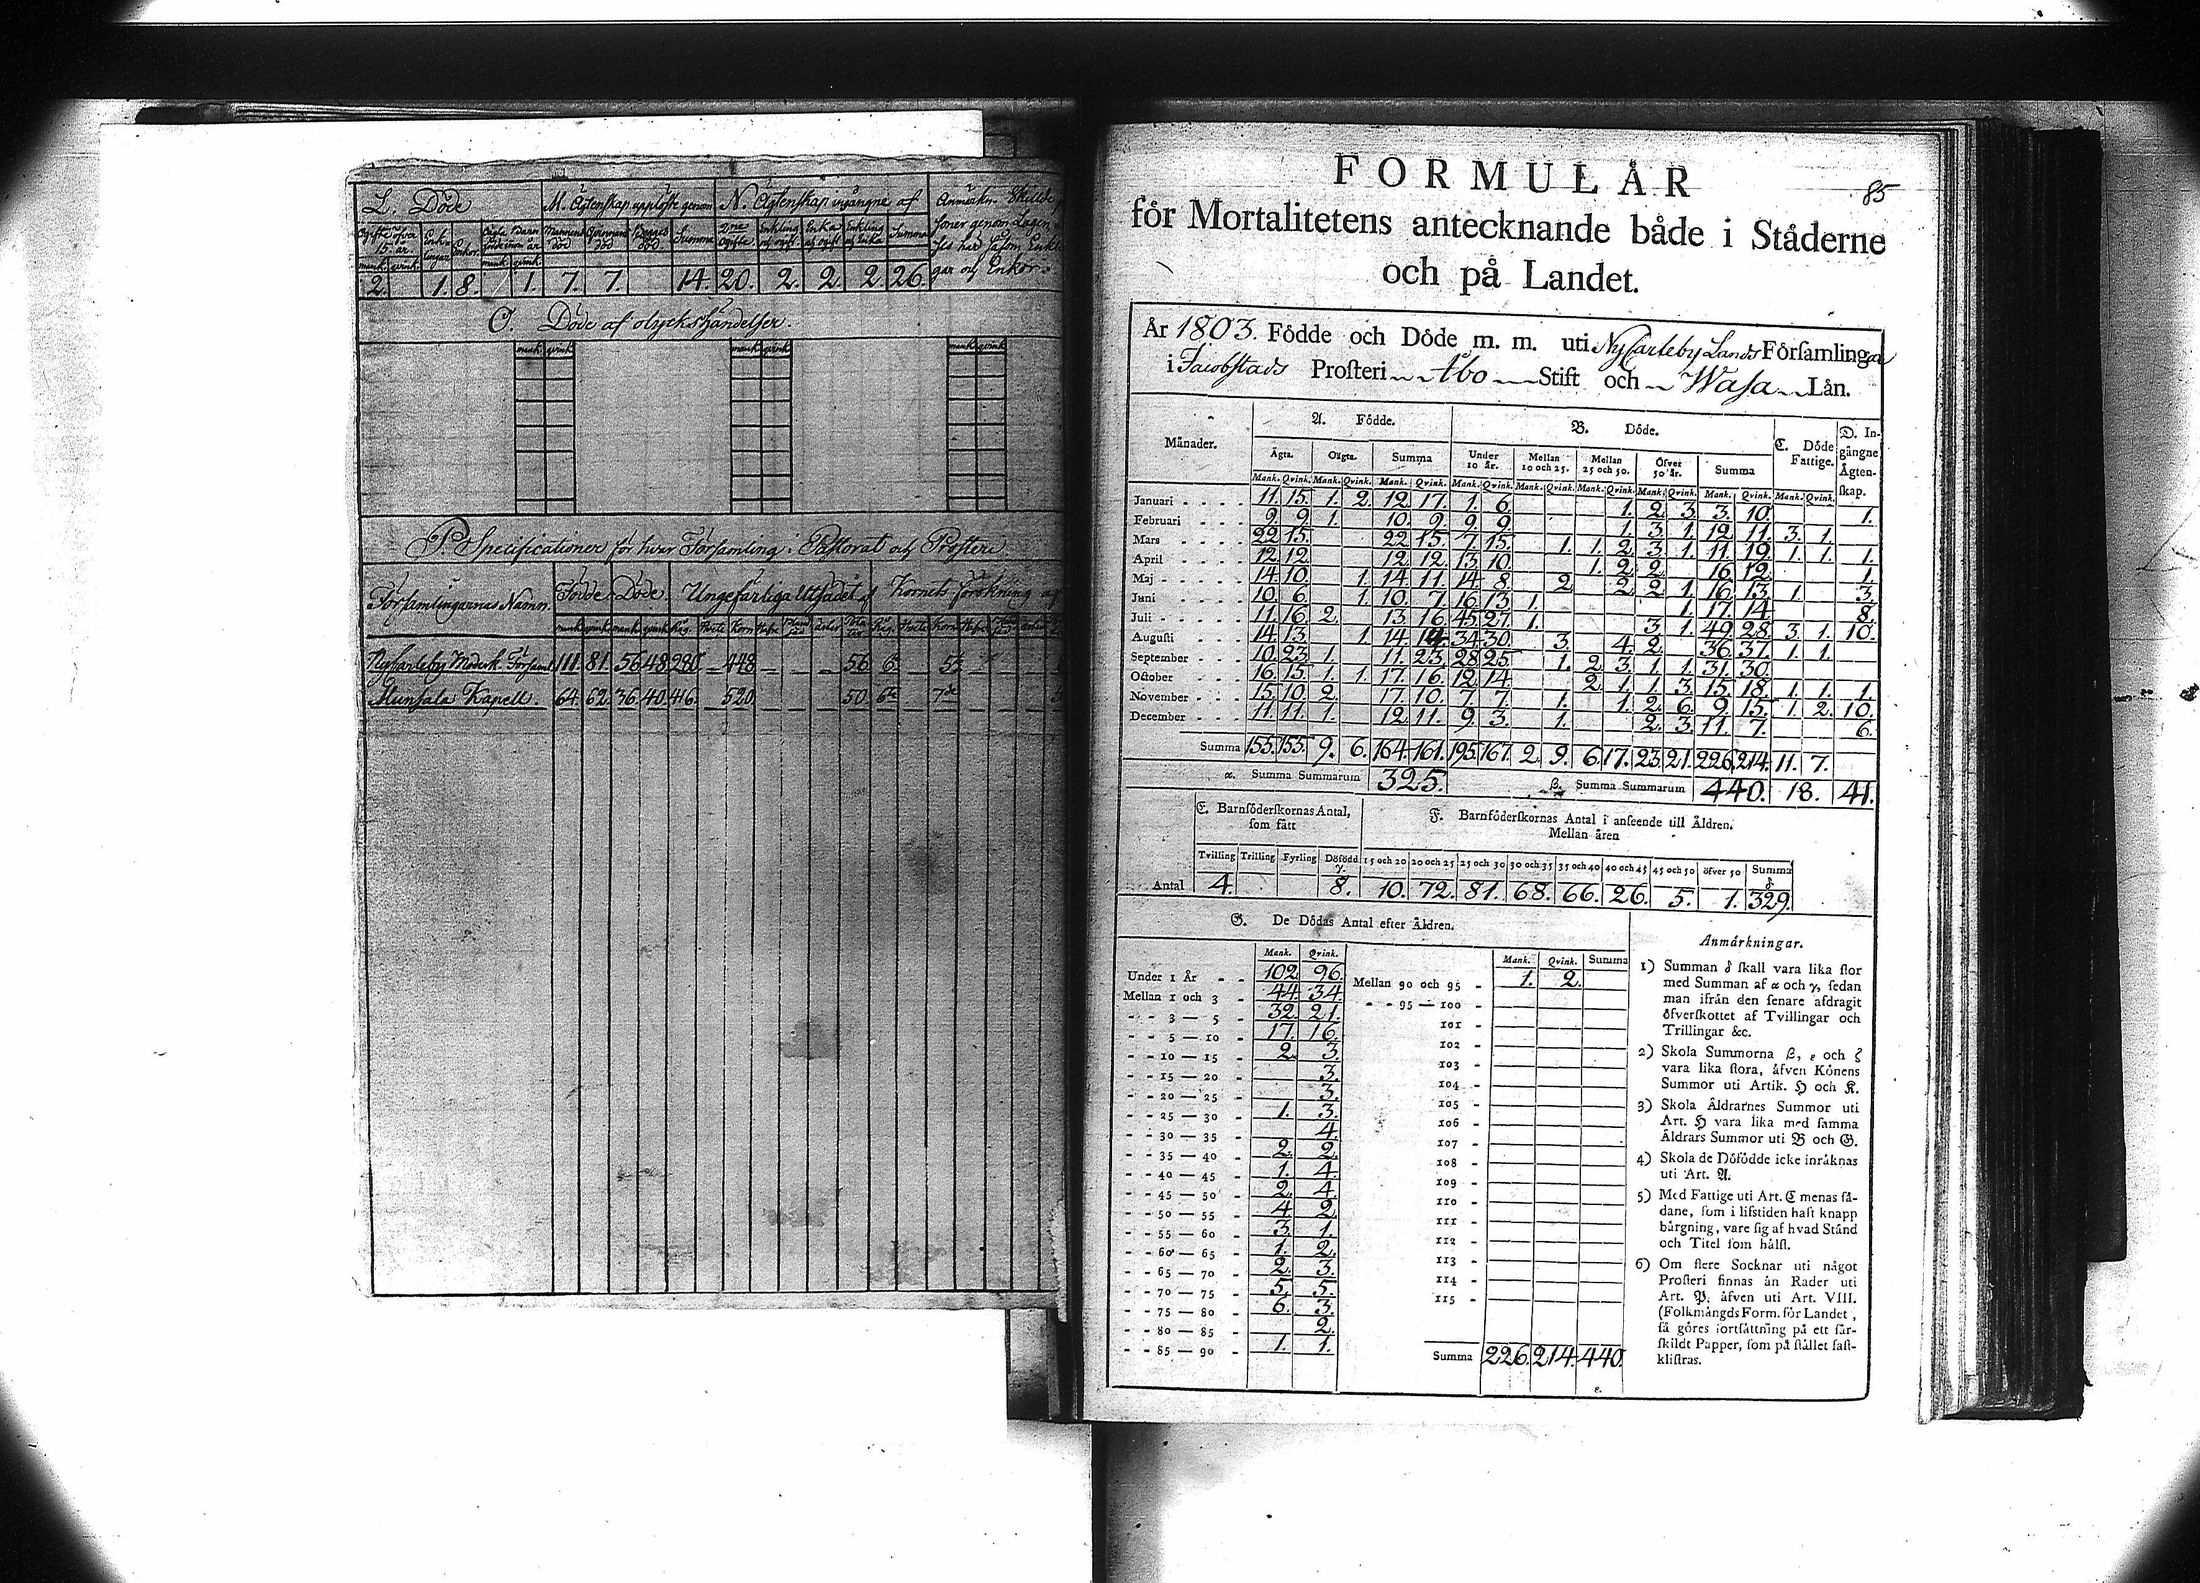 L. Döde
M. Ägtenskap upplöste genom
N. Ägtenskap ingångne af
2. 1. 8. 1. 7. 7. 14. 20. 2. 2. 2. 26.
O. Döde af olyckshändelser.
mank. qvink. mank. qvink. mank. qvink.
P. Specificationer för hvar Församling i Pastorat och Prosteri
Församlingarnas Namn. Födde Döde Ungefärliga Utsädet af Kornets förökning af
NyCarleby Moderk. Församl. 111. 81. 56. 48. 280. 448 56
Munsala Kapell. 64. 62. 36. 40. 416. 520. 50.
85
FORMULÅR
för Mortalitetens antecknande både i Ståderne
och på Landet.
År 1803. Födde och Döde m. m. uti NyCarleby Lands Församlingar
i Jacobstads Prosteri Åbo Stift och Wasa Lån.
Månader. A. Födde. B. Döde. C. Döde Fattige. D. Ingångne Ågtenskap.
Ågta. Oågta. Summa Under 10 år. Mellan 10 och 25. Mellan 25 och 50. Öfver 50 år. Summa
Mank. Qvink. Mank. Qvink. Mank. Qvink. Mank. Qvink. Mank. Qvink. Mank. Qvink. Mank. Qvink. Mank. Qvink. Mank. Qvink.
Januari 11. 15. 1. 2. 12. 17. 1. 6. 1. 2. 3. 3. 10. 1.
Februari 9. 9. 1. 10. 9. 9. 9. 1. 3. 1. 12. 11. 3. 1.
Mars 22. 15. 22. 15. 7. 15. 1. 1. 2. 3. 1. 11. 19. 1. 1. 1.
April 12. 12. 12. 12. 13. 10. 1. 2. 2. 16. 12. 1.
Maj 14. 10. 1. 14. 11. 14. 8. 2. 2. 2. 1. 16. 13. 1. 3.
Juni 10. 6. 1. 10. 7. 16. 13. 1. 1. 17. 14. 8.
Juli 11. 16. 2. 13. 16. 45. 27. 1. 3. 1. 49. 28. 3. 1. 10.
Augusti 14. 13. 1. 14. 14. 34. 30. 3. 4. 2. 36. 37. 1. 1.
September 10. 23. 1. 11. 23. 28. 25. 1. 2. 3. 1. 1. 31. 30.
October 16. 15. 1. 1. 17. 16. 12. 14. 2. 1. 1. 3. 15. 18. 1. 1. 1.
November 15. 10. 2. 17. 10. 7. 7. 1. 1. 2. 6. 9. 15. 1. 2. 10.
December 11. 11. 1. 12. 11. 9. 3. 1. 2. 3. 11. 7. 6.
Summa 155. 155. 9. 6. 164. 161. 195. 167. 2. 9. 6. 17. 23. 21. 226. 214. 11. 7.
α. Summa Summarum 325. β. Summa Summarum 440. 18. 41.
E. Barnföderskornas Antal, som fått
F. Barnföderskornas Antal i anseende till Åldren. Mellan åren
Tvilling Trilling Fyrling Döfödd 15 och 20 20 och 25 25 och 30 30 och 35 35 och 40 40 och 45 45 och 50 öfver 50 Summa
Antal 4. 8. 10. 72. 81. 68. 66. 26. 5. 1. 329.
G. De Dödas Antal efter Åldren.
Mank. Qvink. Mank. Qvink. Summa
Under 1 År 102. 96. Mellan 90 och 95 1. 2.
Mellan 1 och 3 44. 34. 95 — 100
3 — 5 32. 21. 101
5 — 10 17. 16. 102
10 — 15 2. 3. 103
15 — 20 3. 104
20 — 25 3. 105
25 — 30 1. 3. 106
30 — 35 4. 107
35 — 40 2. 2. 108
40 — 45 1. 4. 109
45 — 50 2. 4. 110
50 — 55 4. 2. 111
55 — 60 3. 1. 112
60 — 65 1. 2. 113
65 — 70 2. 3. 114
70 — 75 5. 5. 115
75 — 80 6. 3.
80 — 85 2.
85 — 90 1. 1. Summa 226. 214. 440.
Anmärkningar.
1) Summan δ skall vara lika stor
med Summan af α och γ, sedan
man ifrån den senare afdragit
öfverskottet af Tvillingar och
Trillingar &c.
2) Skola Summorna β, ε och ζ
vara lika stora, åfven Könens
Summor uti Artik. H och K.
3) Skola Åldrarnes Summor uti
Art. H vara lika med samma
Åldrars Summor uti B och G.
4) Skola de Döfödde icke inråknas
uti Art. A.
5) Med Fattige uti Art. C menas så-
dane, som i lifstiden haft knapp
bårgning, vare sig af hvad Stånd
och Titel som hålst.
6) Om flere Socknar uti något
Prosteri finnas ån Rader uti
Art. P, åfven uti Art. VIII.
(Folkmångds Form. för Landet,
så göres fortsåttning på ett sår-
skildt Papper, som på stållet fast-
klistras.